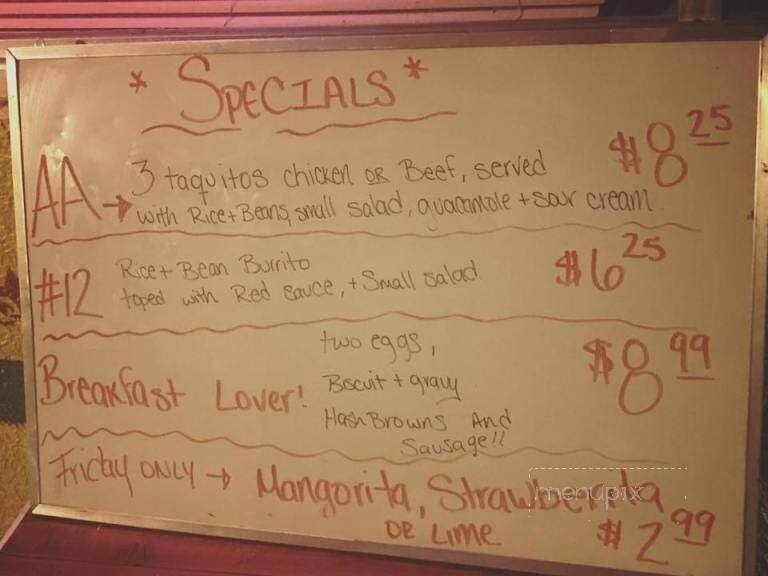 * SPECIALS *
AA → 3 taquitos chicken OR Beef, served $8 25
with Rice + Beans, small salad, guacamole + sour cream.
#12 Rice + Bean Burrito $6 25
toped with Red sauce, + Small salad
Breakfast Lover! two eggs, $8 99
Biscuit + gravy
Hash Browns And
Sausage!!
Friday ONLY → Mangorita, Strawberita
OR Lime $2 99
menupix